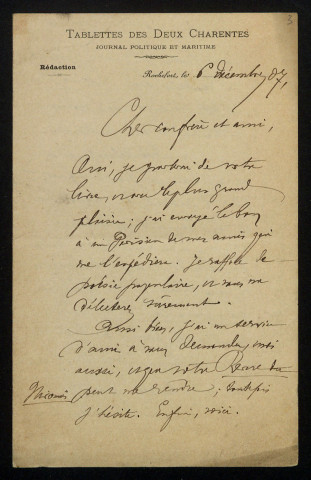 3
TABLETTES DES DEUX CHARENTES
JOURNAL POLITIQUE ET MARITIME
Rédaction
Rochefort, le 6 décembre 87,
Cher confrère et ami,
Oui, je parlerai de votre
livre, avec le plus grand
plaisir ; j'ai envoyé le bon
à un Parisien de mes amis qui
me l'expédiera. Je raffole de
poésie populaire, et vais me
délecter, sûrement.
Aussi bien, j'ai un service
d'ami à vous demander, moi
aussi, et que votre Revue du
peut me rendre ; toutefois
j'hésite. Enfin, voici.